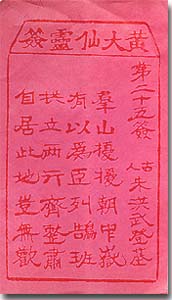 黃大仙靈簽
第二十五簽
古人 朱洪武登基
羣山擾擾朝中嶽
有以爲臣列鵲班
拱立兩行齊整肅
自居此地豈無歡